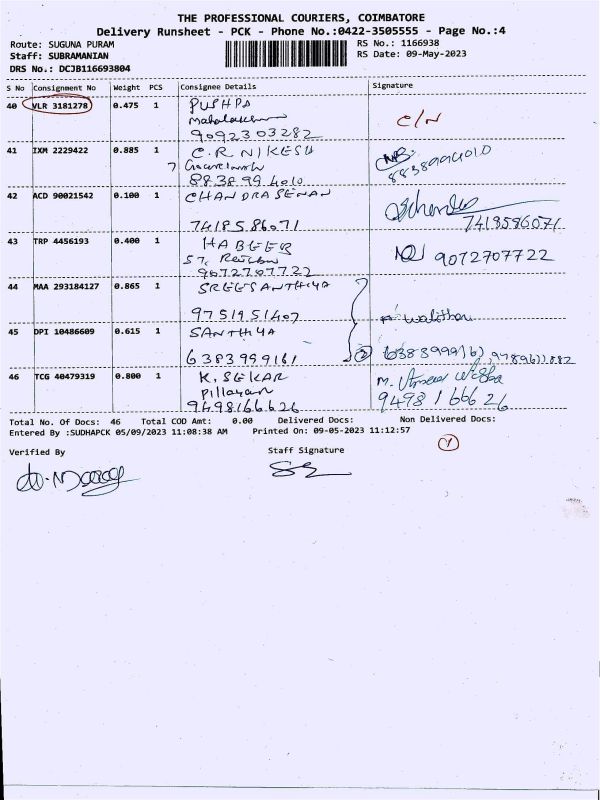 THE PROFESSIONAL COURIERS, COIMBATORE
Delivery Runsheet - PCK - Phone No.:0422-3505555 - Page No.:4
Route: SUGUNA PURAM
RS No.: 1166938
Staff: SUBRAMANIAN
RS Date: 09-May-2023
DRS No.: DCJB116693804
S No Consignment No Weight PCS Consignee Details Signature
40 VLR 3181278 0.475 1 PUSHPA
C/N
9092303282
41 IXM 2229422 0.885 1 C.R NIKESH
8838994010 8838994010
42 ACD 90021542 0.100 1 CHANDRASENAN
7418586071 7418586071
43 TRP 4456193 0.400 1 HABEEB
9072707722 9072707722
44 MAA 293184127 0.865 1 SREESANTHIYA
9751951407
45 DPI 10486609 0.615 1 SANTHIYA
6383999161 2 6383999161
46 TCG 40479319 0.800 1 K. SEKAR
Pillayar
9498166626 9498166626
Total No. Of Docs: 46 Total COD Amt: 0.00 Delivered Docs: Non Delivered Docs:
Entered By :SUDHAPCK 05/09/2023 11:08:38 AM Printed On: 09-05-2023 11:12:57
Verified By Staff Signature